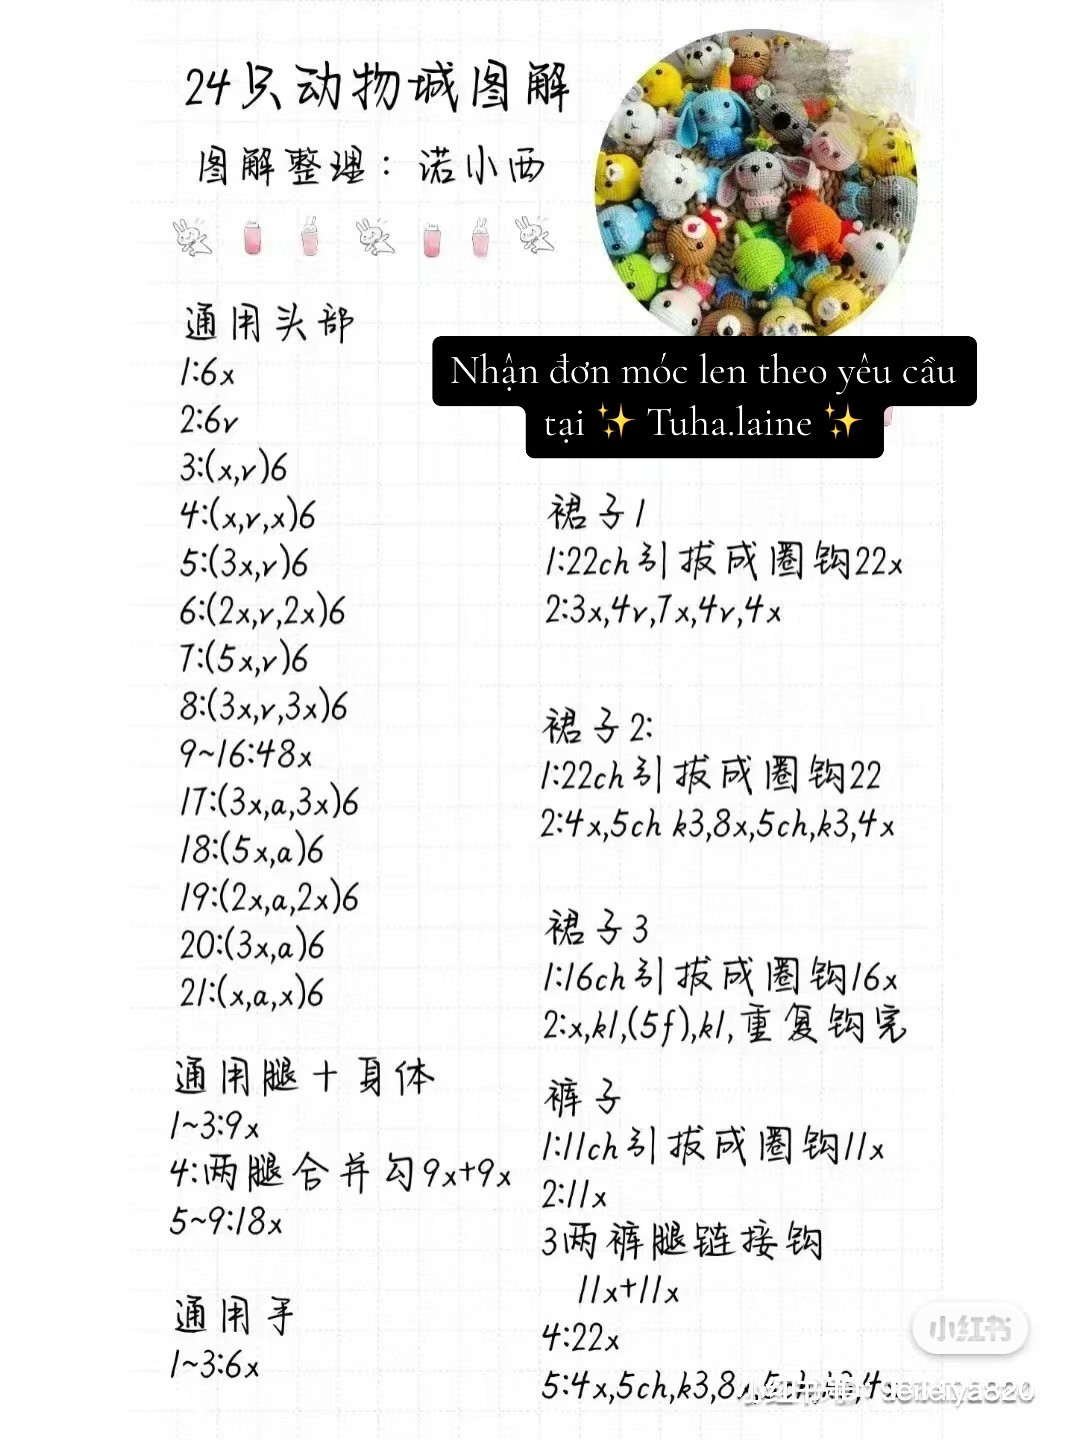 24只动物城图解
图解整理：诺小西
Nhận đơn móc len theo yêu cầu
tại ✨ Tuha.laine ✨
通用头部
1:6x
2:6v
3:(x,v)6
4:(x,v,x)6
5:(3x,v)6
6:(2x,v,2x)6
7:(5x,v)6
8:(3x,v,3x)6
9~16:48x
17:(3x,a,3x)6
18:(5x,a)6
19:(2x,a,2x)6
20:(3x,a)6
21:(x,a,x)6
通用腿+身体
1~3:9x
4:两腿合并勾9x+9x
5~9:18x
通用手
1~3:6x
裙子1
1:22ch引拔成圈钩22x
2:3x,4v,7x,4v,4x
裙子2:
1:22ch引拔成圈钩22
2:4x,5ch k3,8x,5ch,k3,4x
裙子3
1:16ch引拔成圈钩16x
2:x,k1,(5f),k1,重复钩完
裤子
1:11ch引拔成圈钩11x
2:11x
3两裤腿链接钩
11x+11x
4:22x
5:4x,5ch,k3,8x,5ch,k3,4x
小红书